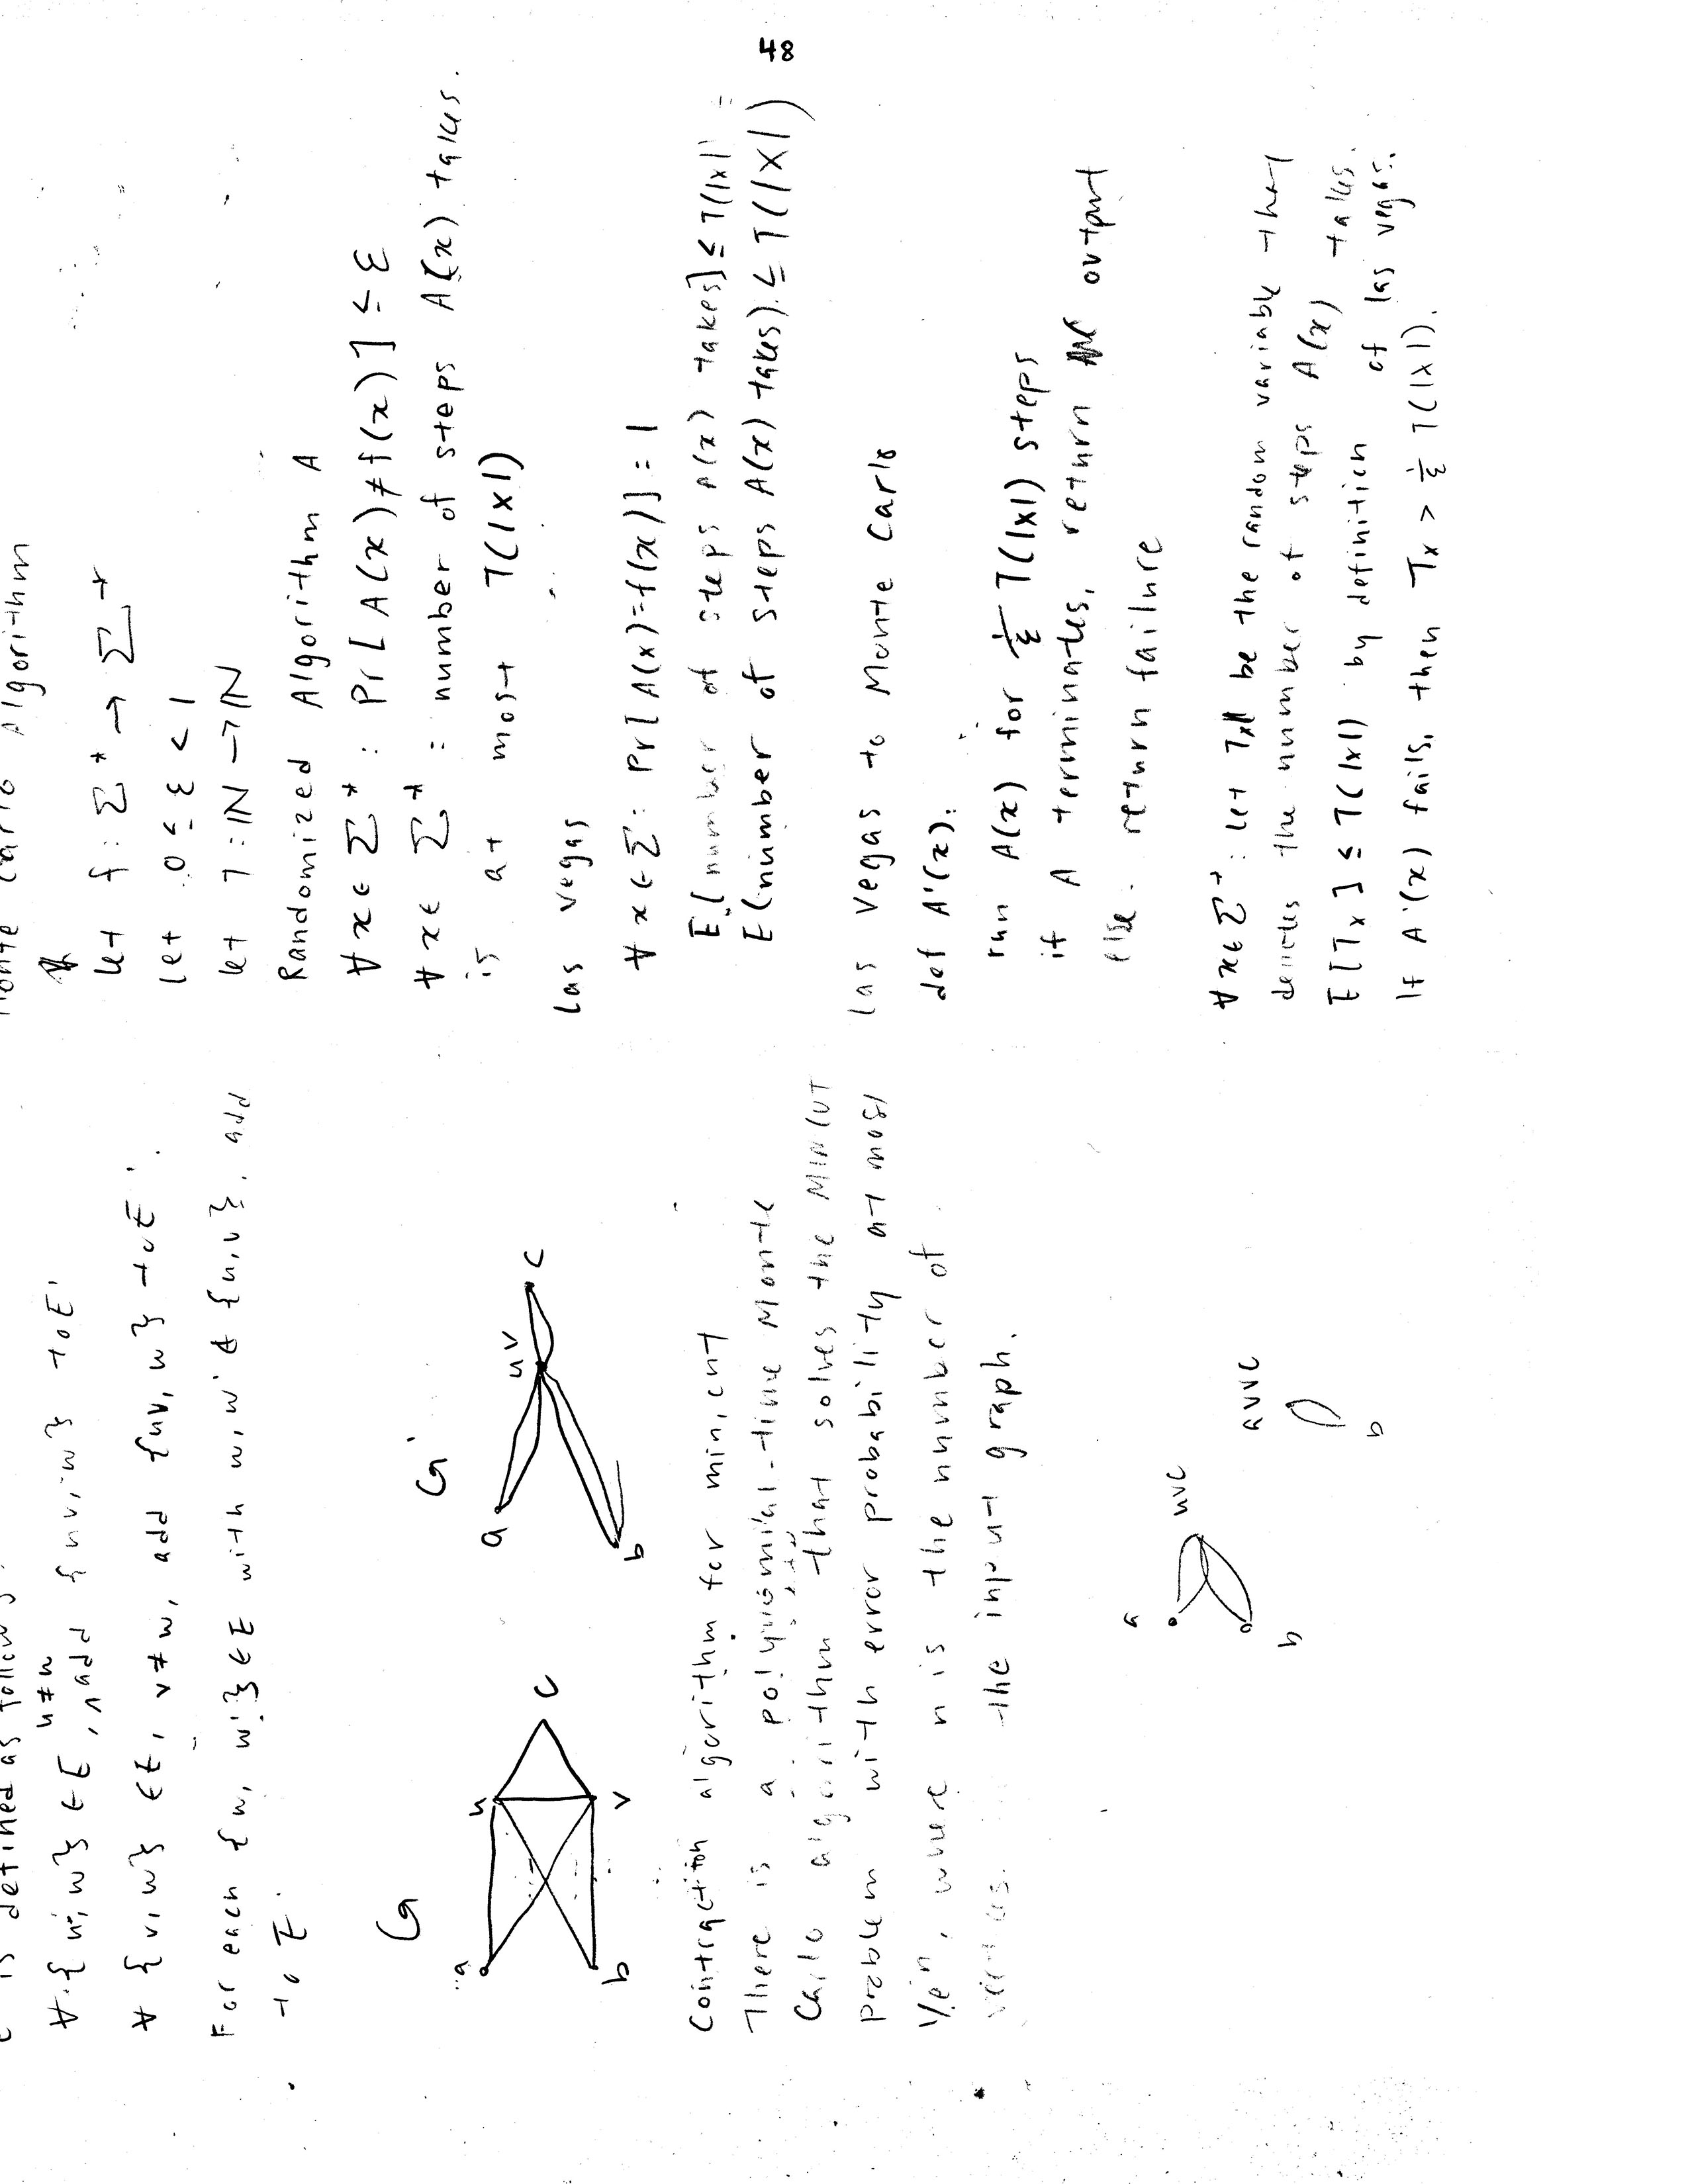 48
is defined as follows
∀ {u, w} ∈ E, u≠w add {uv, w} to E'
∀ {v, w} ∈ E, v≠w, add {uv, w} to E'.
For each {w, w'} ∈ E with w, w' ∉ {u, v}, add
to E'.
G
a
u
c
v
b
G'
a
uv
c
b
Contraction algorithm for min, cut
There is a polynomial-time Monte
Carlo algorithm that solves the MINCUT
problem with error probability at most
1/eⁿ, where n is the number of
vertices. the input graph.
a
uvc
b
auvc
b
Monte Carlo Algorithm
let f: Σ* → Σ*
let 0 ≤ ε < 1
let T: ℕ → ℕ
Randomized Algorithm A
∀ x ∈ Σ*: Pr[A(x) ≠ f(x)] ≤ ε
∀ x ∈ Σ*: number of steps A(x) takes.
is at most T(|x|)
Las vegas
∀ x ∈ Σ: Pr[A(x)=f(x)] = 1
E[number of steps A(x) takes] ≤ T(|x|)
E(number of steps A(x) takes) ≤ T(|x|)
Las Vegas to Monte Carlo
def A'(x):
run A(x) for 1/ε T(|x|) steps
if A terminates, return output
else. return failure
∀ x ∈ Σ*: let Tx be the random variable that
denotes the number of steps A(x) takes.
E[Tx] ≤ T(|x|) by definition of las vegas.
If A'(x) fails, then Tx > 1/ε T(|x|).